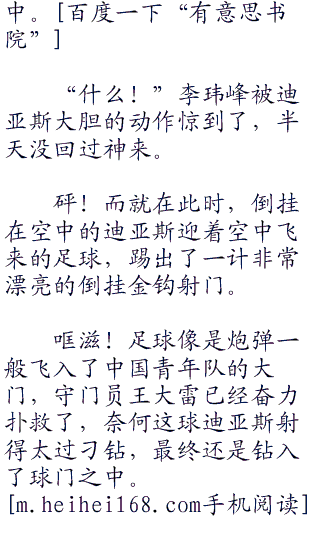 中。[百度一下“有意思书
院”]
“什么！”李玮峰被迪
亚斯大胆的动作惊到了，半
天没回过神来。
砰！而就在此时，倒挂
在空中的迪亚斯迎着空中飞
来的足球，踢出了一计非常
漂亮的倒挂金钩射门。
哐滋！足球像是炮弹一
般飞入了中国青年队的大
门，守门员王大雷已经奋力
扑救了，奈何这球迪亚斯射
得太过刁钻，最终还是钻入
了球门之中。
[m.heihei168.com手机阅读]